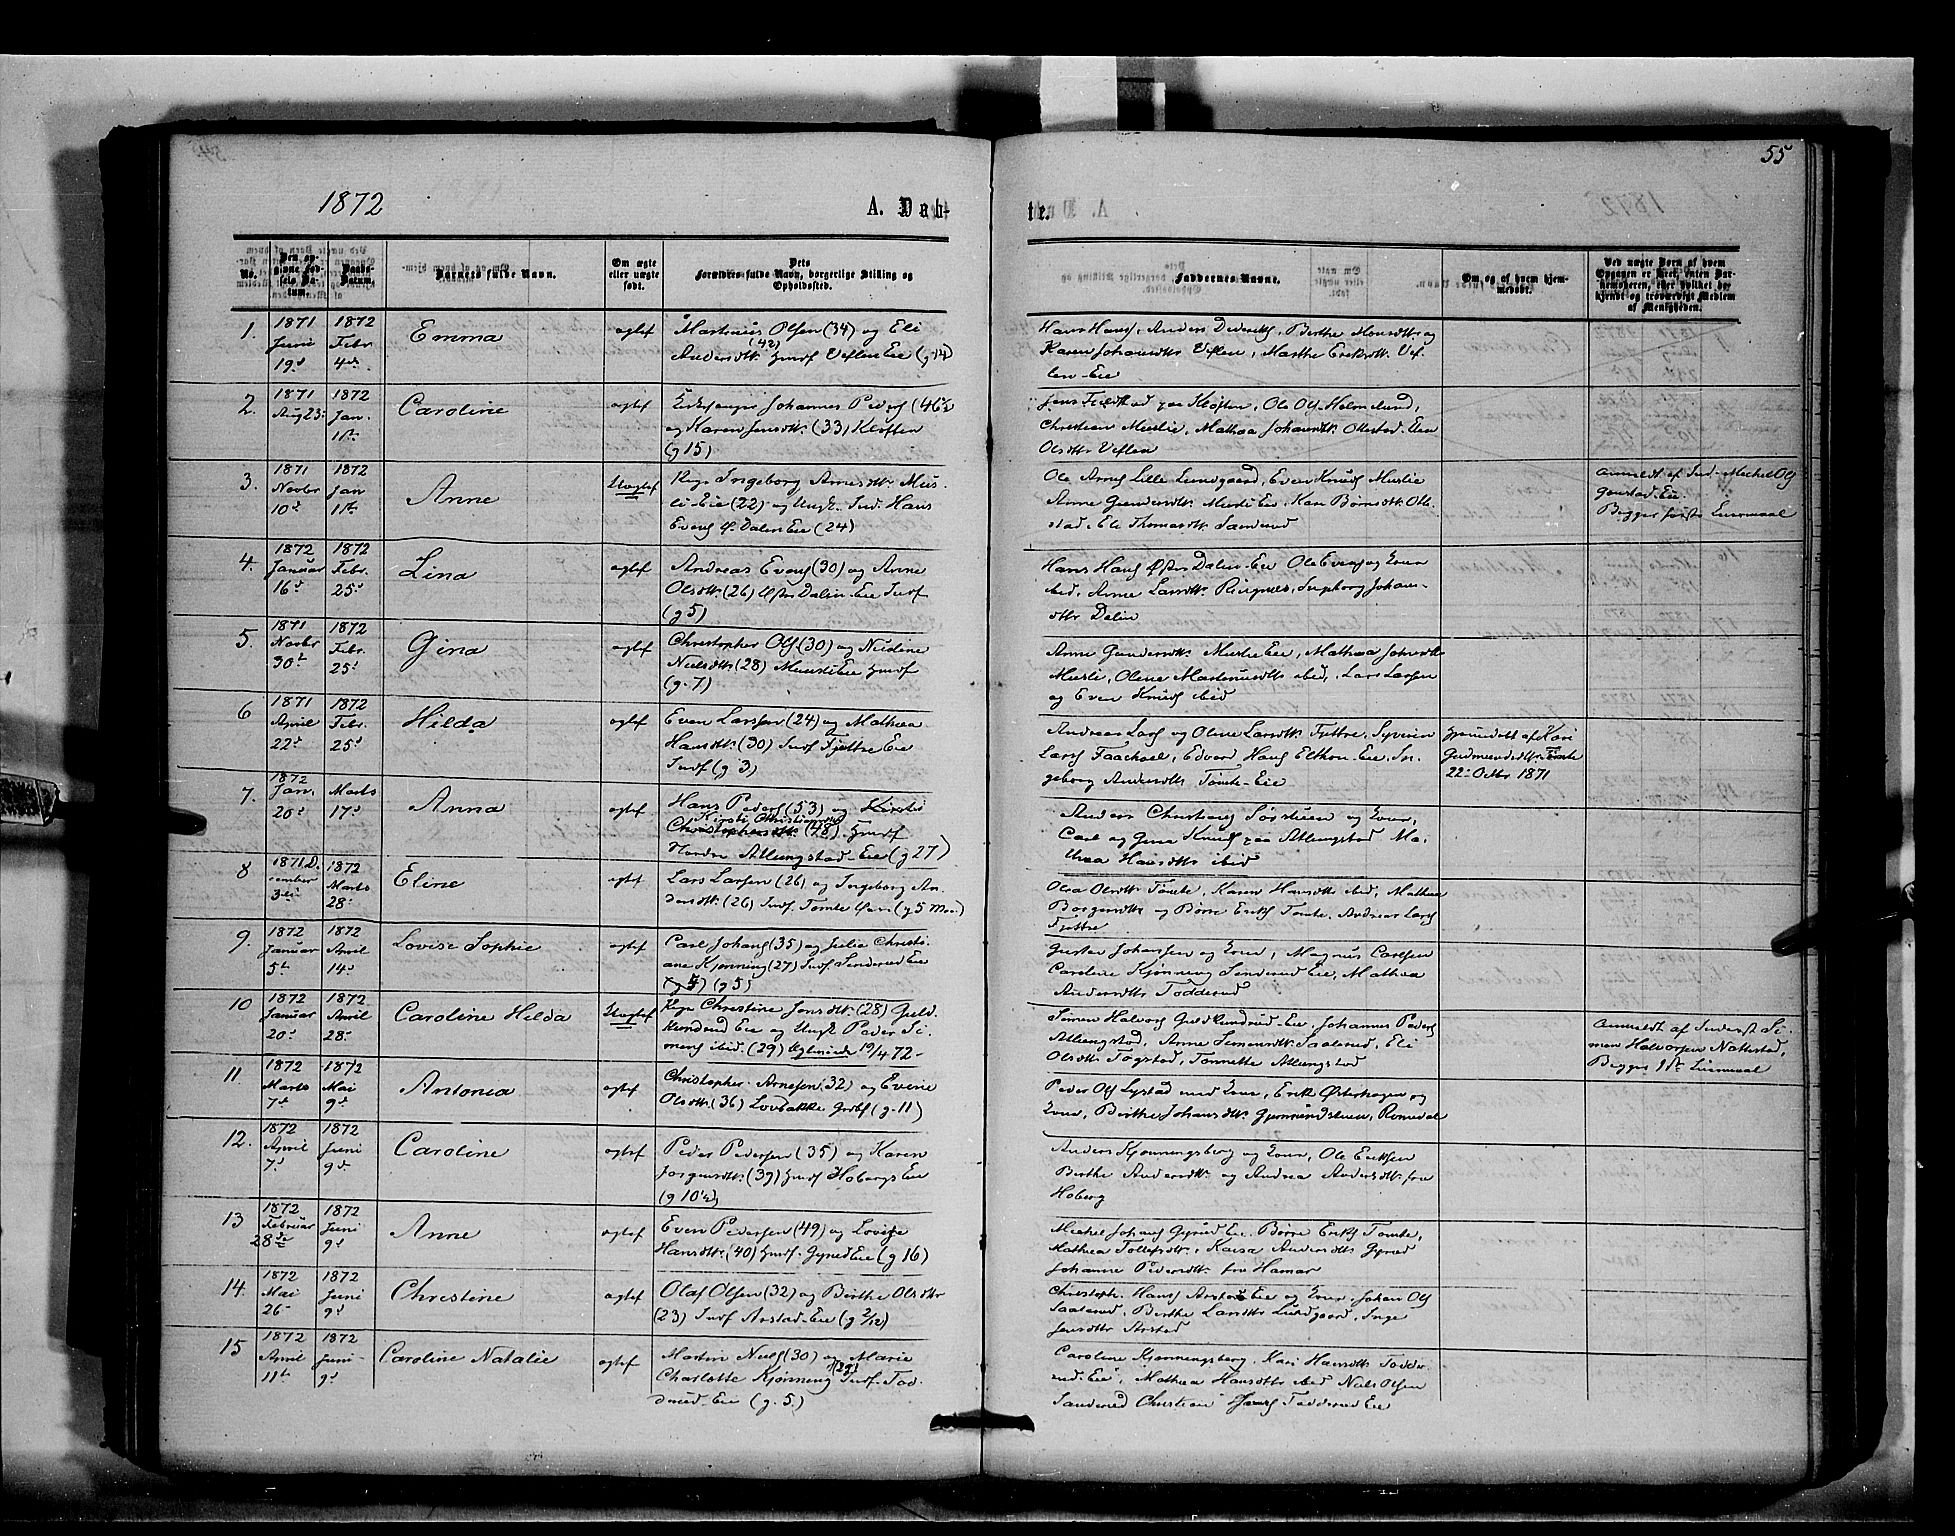 55
1872
A. Døb-
te.
No.
Den op-
givne Fød-
sels Da-
tum.
Daabs-
Datum.
Barnets fulde Navn.
Om ægte
eller uægte
født.
Dets
Forældres fulde Navn, borgerlige Stilling og
Opholdssted.
Faddernes Navne.
Om og af hvem hjem-
medøbt.
Ved uægte Børn af hvem
Opgaven er skeet, enten Jor-
demoderen, eller hvilket be-
kjendt og troværdigt Medlem
af Menigheden.
1. 1871 Juni 19d
1872 Febr 4de
Emma
ægtef
Martinus Olsen (34) og Eli
(42)
Andersdtr. Huusf Veflen Eie (g 14)
Hans Hansf, Anders Dideriksf, Berthe Hansdtr og
Karen Johansdtr Veflen, Marthe Eriksdtr. Vef-
len-Eie
2. 1871 Aug 23
1872 Jan. 1ste
Caroline
ægtef
Kirkesanger Johannes Pedersf (46½
og Karen Jensdtr. (33) Kløften
(g 15)
Jens paa Kløften, Ole Olsf Holmelund,
Christian Muslie, Mathea Johansdtr. Ottestad
Olsdtr Veflen
3. 1871 Novbr 10d
1872 Jan 1ste
Anne
Uægtef
Pige Ingeborg Arnesdtr. Mus-
li-Eie (22) og Ungk. Ind. Hans
Evensf Ø. Dalen Eie (24)
Ole Arnesf Lille Lundgaard, Even Knudsf Muslie
Anne Gundersdtr. Musli Eie, Kari Børresdtr. Ott-
stad, Eli Thomasdtr. Sandrud
Anmeldt af Ind. Mikkel Olsf
Gaustad-Eie
Begges første Leiermaal
4. 1872 Januar 16d
1872 Febr. 25d
Lina
ægtef
Andreas Evensf (30) og Anne
Olsdtr. (26) Østre Dalen-Eie Indf
(g 5)
Hans Hansf Østre Dalen-Eie Ole Evensf og Kone
ibid, Anne Larsdtr. Ringnes, Ingeborg Johans-
dtr Dalen
5. 1871 Novbr 30te
1872 Febr. 25d
Gina
ægtef
Christopher Olsf (30) og Nicoline
Nielsdtr. (28) Muusli Eie Huusf
(g. 7)
Anne Gundersdtr. Muslie Eie, Mathea Johnsdtr
Musli, Oline Martinusdtr ibid, Lars Larsen
og Even Knudsf ibid
6 1871 April 22d
1872 Febr. 25d
Hilda
ægtef
Even Larsen (24) og Mathea
Hansdtr. (30) Indf Fjættre Eie
Indf (g 3)
Andreas Larsf og Oline Larsdtr. Fjettre, Syverin
Larsf Faachoel, Edvard Hansf Elthon-Eie, In-
geborg Andersdtr. Tomte-Eie
hjemdøbt af Kari
Gudmundsdtr. Tomte
22. Octbr 1871
7. 1872 Jan. 20d
Marts 17d
Anna
ægtef
Hans Pedersf (53) og Kirsti
Kirsti Christiansdtr
Christophersdtr. (48) Huusf
Nordre Atlungstad-Eie (g 27)
Anders Christiansf Sørstuen og Kone,
Carl og Gina Knudsf paa Atlungstad Ma-
thea Hansdtr ibid
8 1871 De-
cember 3die
1872 Marts 28d
Eline
ægtef
Lars Larsen (26) og Ingeborg An-
dersdtr. (26) Indf. Tomte Eie (g 5 Md.)
Olea Olsdtr. Tomte, Karen Hansdtr ibid, Mathea
Borgersdtr og Børre Eriksf Tomte, Andreas Larsf
Fjettre
9. 1872 Januar 5te
1872 April 14d
Lovise Sophie
ægtef
Carl Johansf (35) og Julie Christi-
ane Kjønning (27) Indf. Senderud Eie
(g 4) (g 5)
Gustav Johansen og Kone, Magnus Carlsen
Caroline Kjønning Senderud Eie, Mathea
Andersdtr Todderud
10 1872 Januar 20d
1872 April 28d
Caroline Hilda
Uægtef
Pige Christine Jonsdtr. (28) Guld-
kundrud Eie og Ungk. Peder Si-
monsf ibid. (29) 19/4 72-
Simen Halvorsf Guldkundrud Eie, Johannes Pedersf
Atlungstad, Anne Simensdtr. Saalerud, Eli
Olsdtr. Fogstad, Tonnette Atlungstad
Anmeldt af Inderst Si-
mon Halvorsen Nattestad,
Begges 1ste Leiermaal
11. 1872 Marts 7d
1872 Mai 9d
Antonia
ægtef
Christopher Arnesen (32) og Evine
Olsdtr. (36) Lovbakke Grdbf (g. 11)
Peder Olsf Lystad med Kone, Erik Østerhagen og
Kone, Berthe Johansdtr. Gjømmundstuen, Romedal
12. 1872 April 7d
1872 Juni 9d
Caroline
ægtef
Peder Pedersen (35) og Karen
Jørgensdtr. (39) Huusf Hobergs Eie
(g 10½)
Anders Kjønningsberg og Kone, Ole Eriksen
Berthe Andersdtr. og Andrea Andersdtr. fra
Hoberg
13 1872 Februar 28de
1872 Juni 9d
Anne
ægtef
Even Pedersen (49) og Lovise
Hansdtr. (40) Huusf. Gyrud Eie (g 16)
Mikkel Johansf Gyrud Eie, Børre Eriksf Tomte,
Mathea Tollefsdtr., Kaisa Andersdtr Gyrud
Johanne Pedersdtr fra Hamar
14. 1872 Mai 26-
1872 Juni 9d
Christine
ægtef
Olaf Olsen (32) og Berthe Olsdtr
(23) Indf Arstad-Eie (g 2/12)
Christoph. Hansf Arstad Eie og Kone, Johan Olsf
Saalerud, Berthe Larsdtr Lundgaard, Inge
Jensdtr Arstad
15 1872 April 11te
1872 Juni 9d
Caroline Natalie
ægtef
Martin Nielsf (30) og Marie
Charlotte Kjønning (29) Indf. Tod-
derud-Eie (g. 5.)
Caroline Kjønningsberg, Kari Hansdtr Todde-
rud-Eie, Mathea Hansdtr ibid Niels Olsen
Sanderud Christian Hansf Todderud Eie